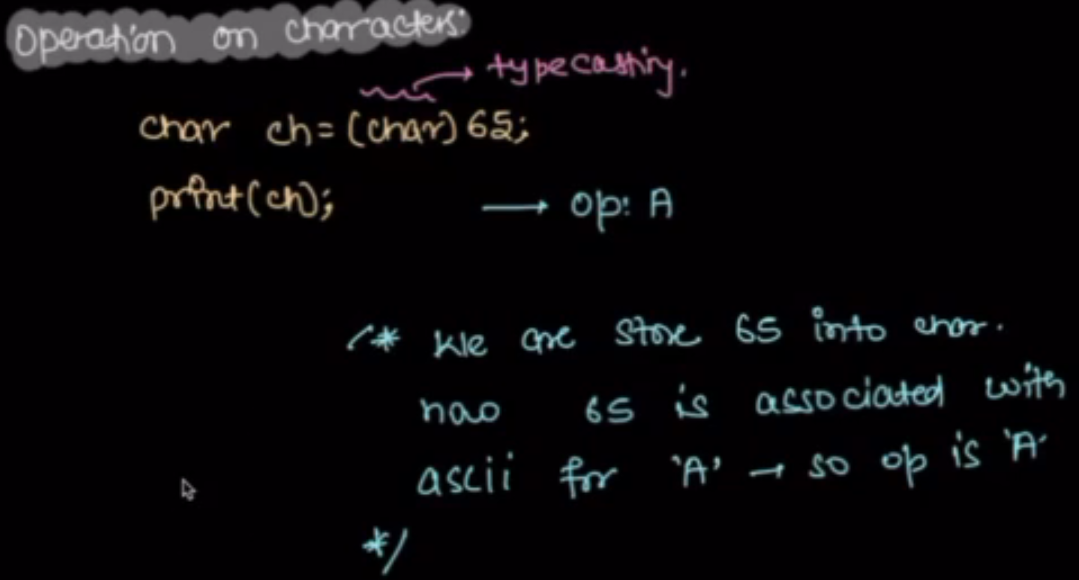 Operation on characters:
typecasting.
char ch = (char) 65;
print(ch); → op: A
/* We are store 65 into char.
now 65 is associated with
ascii for 'A' → so op is 'A'
*/